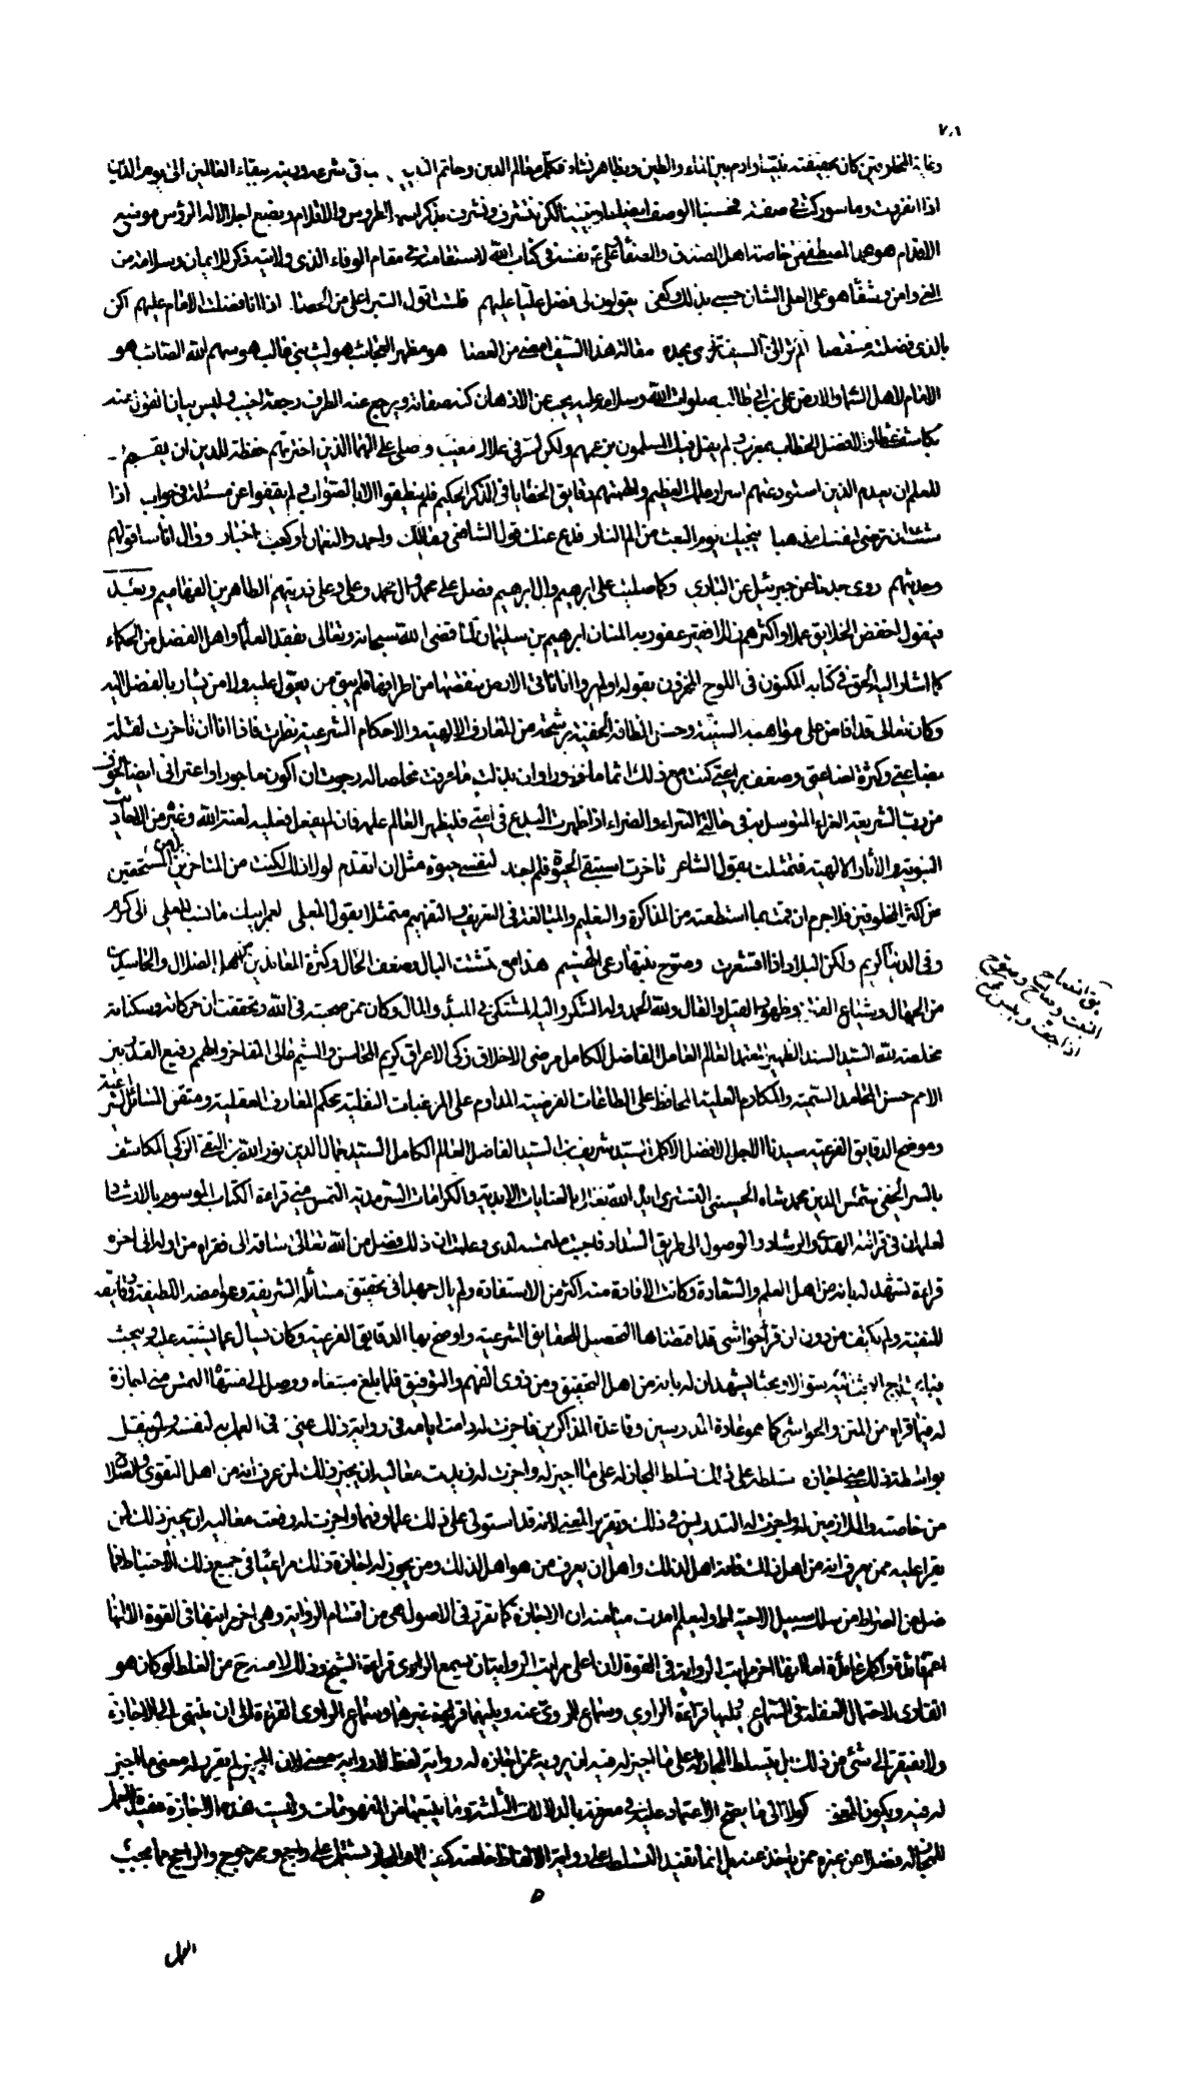 ٧٠٦
وغاية المخلوقين كان بحقيقته نبيا وآدم بين الماء والطين وبظاهر نشأته مكمل معالم الدين وخاتم النبيين باقي شرعه ودينه ببقاء العالمين الى يوم الدين
اذا انفردت وما سوركت في صفة فحسبنا الوصف ايضاحا وتبيينا لكن نتشرف ونشرف بذكر اسمه الطروس والاقلام ويضع اجلالا له الرؤس موضع
الاقدام هو محمد المصطفى خاصة اهل الصدق والصفا وعلى نفسه في كتاب الله لاستقامته في مقام الوفاء الذي ولايته ذكر للايمان وسلامة من
هو على العلي الشان حسبي بذلك وكفى يقولون لي فضل عليا عليهم فلست اقول التبر اعلى من الحصا اذا انا فضلت الامام عليهم اكن
بالذي فضلته متنقصا الم تر ان السيف يزرى بحده مقالة هذا السيف امضى من العصا هو مظهر العجائب هو ليث بني غالب هو سهم الله الصائب هو
الامام لاهل السماء والارض علي بن ابي طالب صلوات الله وسلامه عليه يحجب عن الاذهان كنه صفاته ويرجع عنه الطرف رجعة اخيب وليس بيان القول عنه
بكاشف غطاء ولا فصل الخطاب بمعرب ولم يضل فيك المسلمون بزعمهم ولكن لسر في علاك مغيب وصلى على ائمتنا الذين اخترتهم حفظة للدين
للعلم ان بعدم الذين استودعتهم اسرار علمك العظيم والهمتهم دقايق الخفايا في الذكر الحكيم فلم ينطقوا الا بالصواب ولم يقفوا عن مسئلة في جواب اذا
شئت ان ترضى لنفسك مذهبا ينجيك يوم البعث من الم النار فدع عنك قول الشافعي ومالك واحمد والنعمان او كعب احبار ووال اناسا قولهم
وحديثهم روى جدنا عن جبرئيل عن الباري وكما صليت على ابراهيم وال ابراهيم فصل على محمد وال محمد وعلي وعلى ذريتهم الطاهرين وبعد
فيقول اخفض الخلايق عملا واكثرهم زللا فقير عفو ربه المنان ابراهيم بن سليمان لما قضى الله سبحانه وتعالى بفقد العلماء واهل الفضل من الحكماء
كما اشار اليه الحق في كتابه المكنون في اللوح المخزون بقوله اولم يروا انا ناتي الارض ننقصها من اطرافها فلم يبق من يعول عليه ولا من يشار بالفضل اليه
وكان تعالى قد افاض علي مواهبه السنية وحسن الطافه الخفية برشحة من المعارف الالهية والاحكام الشرعية نظرت فاذا انا ان تاخرت لقلة
بضاعتي وكثرة اضاعتي وضعف براعتي كنت مع ذلك اثما مأزورا وان بذلت ما عرفت مخلصا له رجوت ان اكون ماجورا واعتراني ايضا الخوف
من رب الشريعة الغراء المتوسل به في حالتي السراء والضراء اذا ظهرت البدع في امتي فليظهر العالم علمه فان لم يفعل فعليه لعنة الله وغيره من الاحاديث
النبوية والاثار الالهية فتمثلت بقول الشاعر تاخرت استبقي الحيوة فلم اجد لنفسي حيوة مثل ان اتقدم لولا ذلك لكنت من المتاخرين بل من المستحقين
عن اكثر المخلوقين فلا جرم ان قمت بما استطعته من المذاكرة والتعليم والمبالغة في التعريف والتفهيم متمثلا بقول المعلى لعمر ابيك ما نسب المعلى الى كرم
وفي الدنيا كريم ولكن البلاد اذا اقشعرت وصوح نبتها رعي الهشيم هذا مع تشتت البال وضعف الحال وكثرة المعاندين من اهل الضلال والحاسدين
من الجهال وشياع الفتن وظهور القيل والقال ولله الحمد وله الشكر واليه المشتكى في المبدأ والمال وكان ممن صحبته في الله وتحققت ان حركاته وسكناته
مخلصة لله السيد السند الظهير المعتمد العالم العامل الفاضل الكامل مرضي الاخلاق زكي الاعراق كريم المحاسن والشيم عالي المفاخر والهمم رفيع القدر بين
الامم حسن المحامد السمية والمكارم العلية المحافظ على الطاعات الفرضية المداوم على المرغبات النفلية محكم المعارف العقلية ومتقن المسائل الشرعية
وموضح الدقايق الفرعية سيدنا الاجل الافضل الاكمل السيد شريف بن السيد الفاضل العالم الكامل السيد جمال الدين نور الله بن التقي الزكي المكاشف
بالسر الخفي شمس الدين محمد شاه الحسيني التستري ايده الله تعالى بالعنايات الابدية والكرامات السرمدية التمس مني قراءة الكتاب الموسوم بالارشاد
لعلمه ان في قرائته الهدى والرشاد والوصول الى طريق السداد فاجبت ملتمسه لدي وعلمت ان ذلك فضل من الله تعالى ساقه الي فقراه من اوله الى اخره
قراءة تشهد له بانه من اهل العلم والسعادة وكانت الافادة منه اكثر من الاستفادة ولم يال جهدا في تحقيق مسائله الشريفة وغوامضه اللطيفة ودقايقه
النفيسة ولم يكتف من دون ان قرأ حواشي قد امضناها لتحصيل الحقايق الشرعية واوضح بها الدقايق الفرعية وكان يسأل عما يشتبه عليه ويبحث
سؤالا وبحثا يشهدان له بانه من اهل التحقيق ومن ذوي الفهم والتوفيق فلما بلغ مبتغاه ووصل الى منتهاه التمس مني اجازة
له فيما قراه من المتن والحواشي كما هو عادة المدرسين وقاعدة المذاكرين فاجزت له دامت ايامه في رواية ذلك عني في العمل به لنفسه
بواسطة ذلك مني اجازة سلطة على ذلك تسلط المجاز له على ما اجيز له واجزت له زيدت معاليه ان يجيز ذلك لمن عرف انه من اهل التقوى والصلاح
من خاصته والملازمين له واجزت له التدريس في ذلك وتقرير المعنى لانه قد استولى على ذلك علما وفهما واجزت له رفعت معاليه ان يجيز ذلك لمن
يقرا عليه ممن يعرف انه من اهل ذلك فانه اهل لذلك واهل ان يعرف من هو اهل لذلك ومن يجوز له اجازة ذلك مراعيا في جميع ذلك الاحتياط فما
ضل عن الصراط من سلك سبيل الاحتياط وليعلم ادمت ميامنه ان الاجازة كما تقرر في الاصول هي من اقسام الرواية وهي اخر مراتبها في القوة الا انها
اعم فائدة واكمل عائدة اما انها اخر مراتب الرواية في القوة لان اعلى مراتب الرواية ان يسمع الراوي قراءة الشيخ وذلك لامنه من الغلط لو كان هو
القاري لاحتمال الغفلة في السماع ويليها قراءة الراوي وسماع المروي عنه ويليهما قراءة غيرهما وسماع الراوي القراءة الى ان ينتهي الى الاجازة
ولا يفتقر الى شيء من ذلك بل يتسلط المجاز له على ما اجيز له فيه ان يرويه عن اجازه له رواية لفظ لا رواية معنى لان المجيز لم يقرر له معنى ما اجيز
له فيه ويكون المعنى موكولا الى ما يصح الاعتماد عليه في معرفته بالدلالات الثلاثة وما يتبعها من المفهومات وليست هذه الاجازة مفيدة العمل
للمجاز له فضلا عن غيره ممن ياخذ عنه بل انما تفيد التسلط على رواية الالفاظ خاصة يشتمل على راجح ومرجوح والراجح ما يجب
العمل